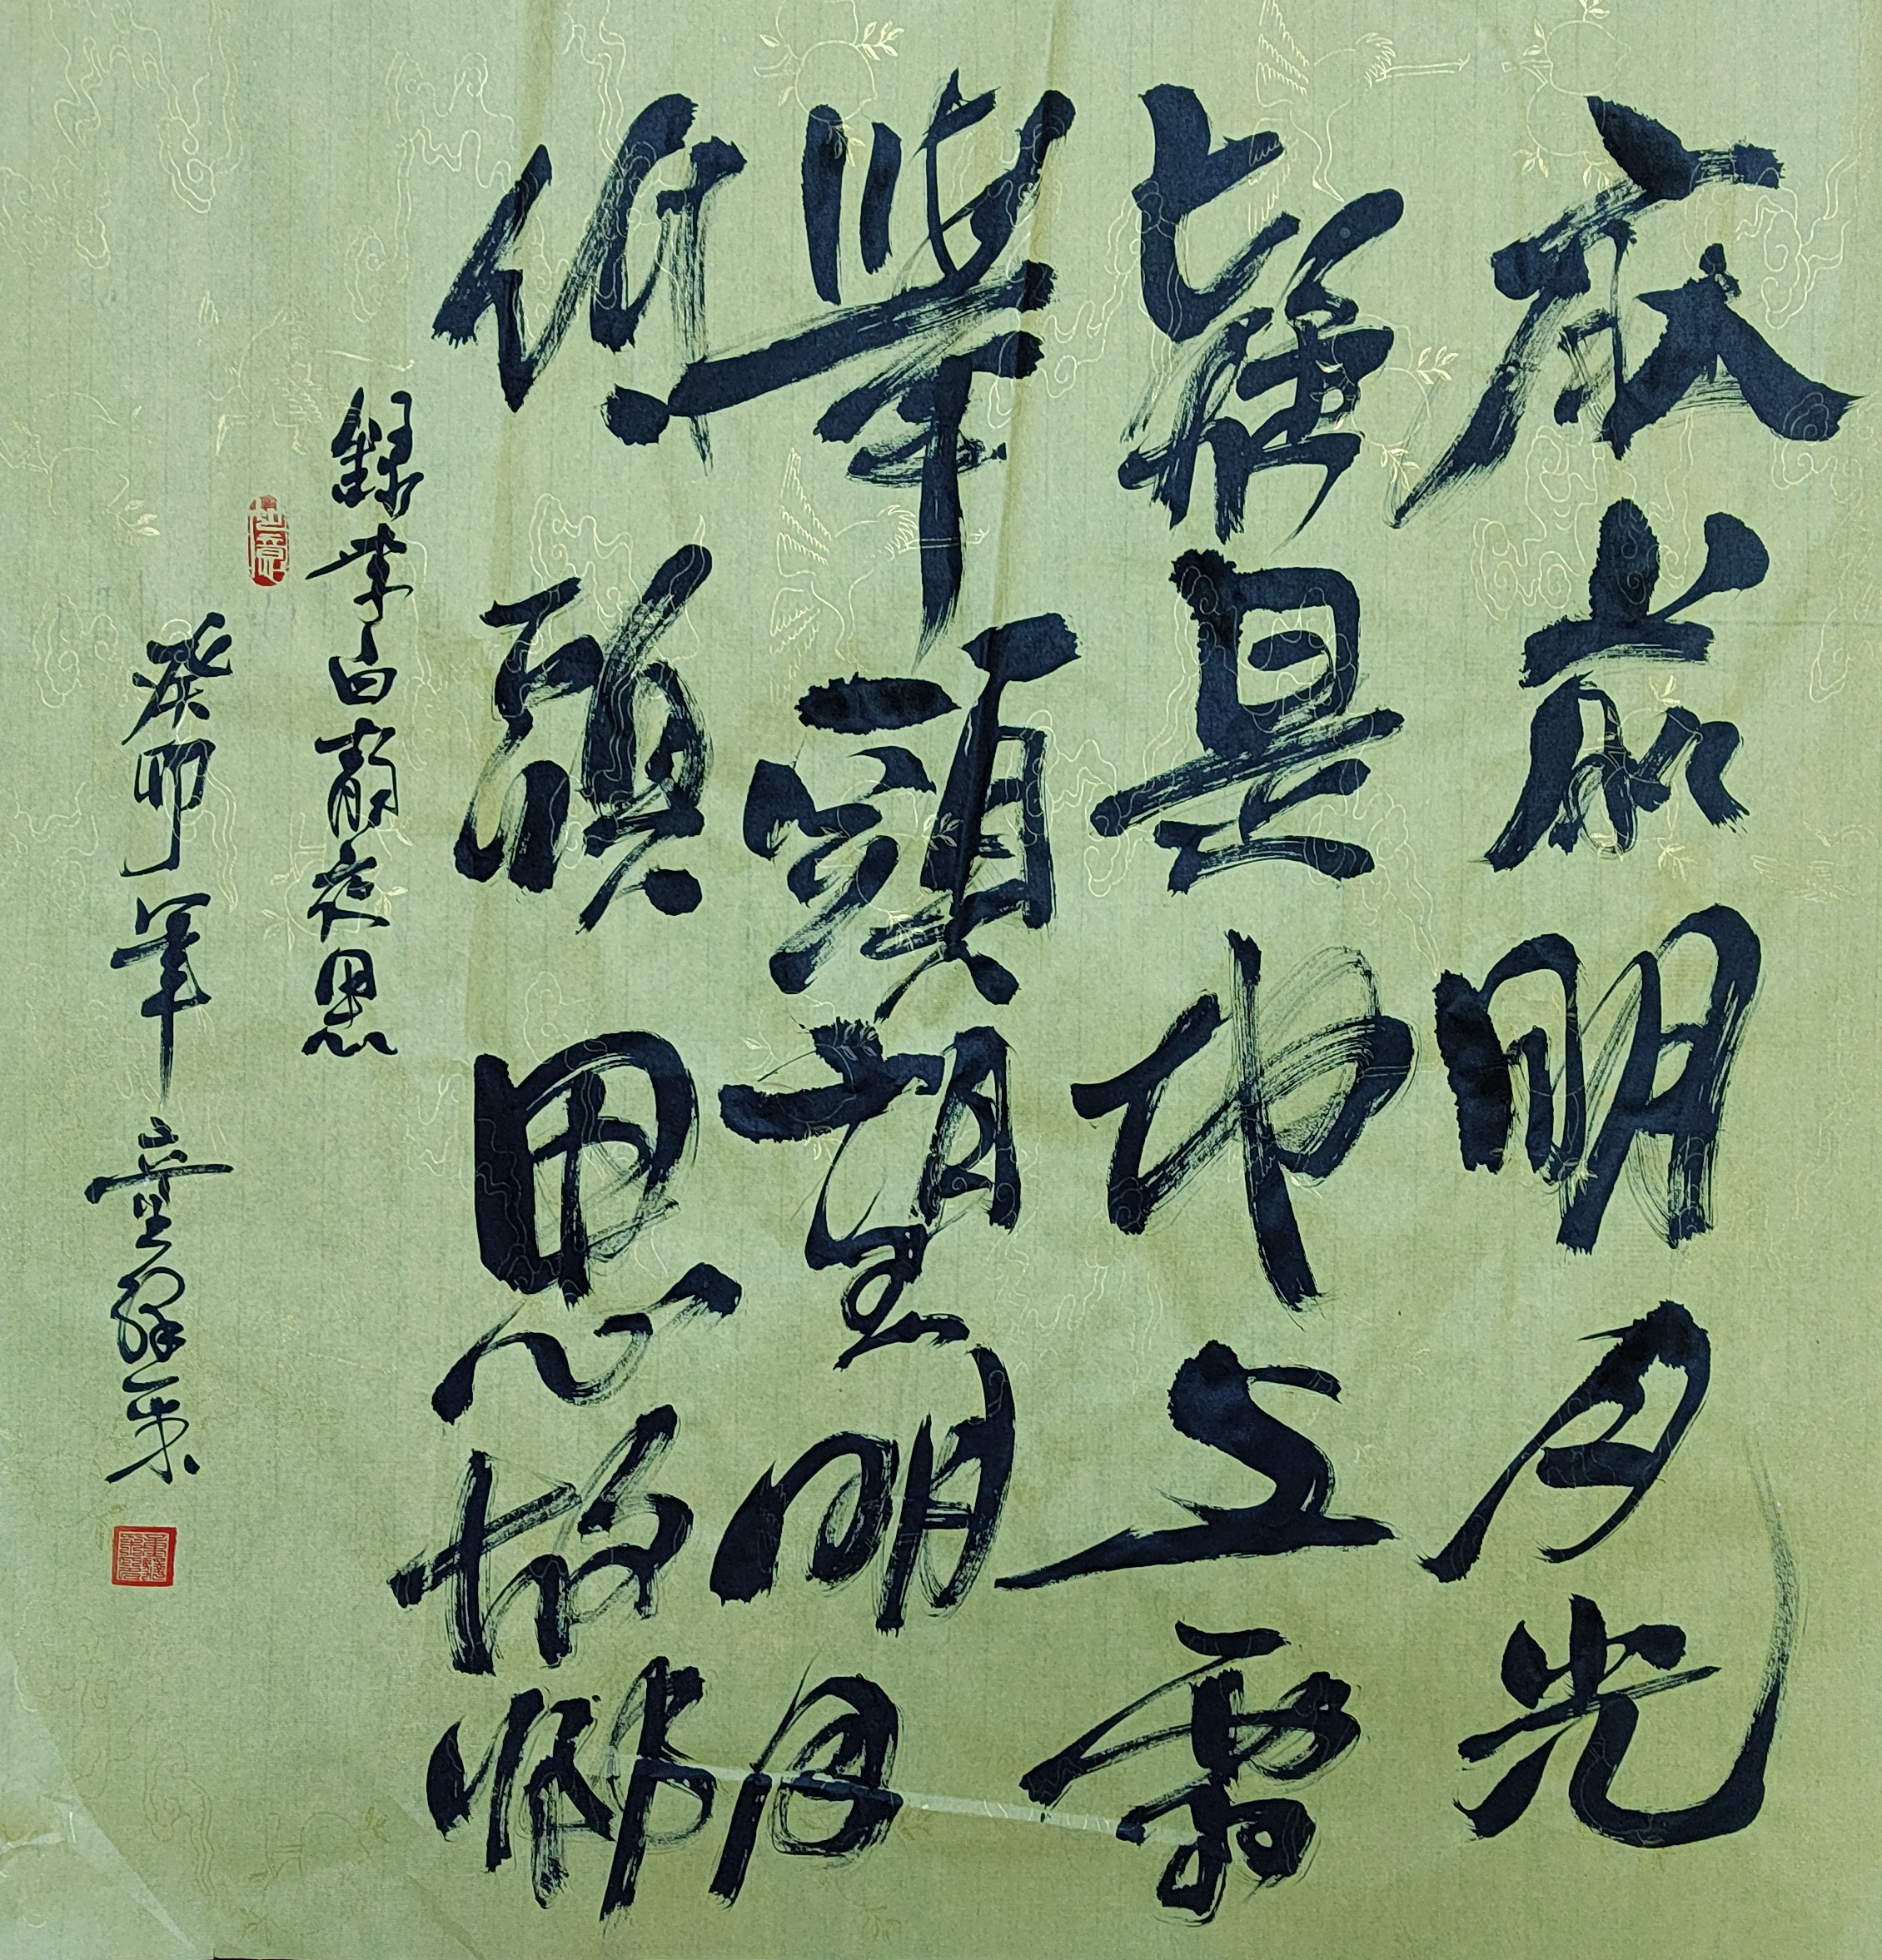 床前明月光
疑是地上霜
舉頭望明月
低頭思故鄉
錄李白靜夜思
癸卯年童